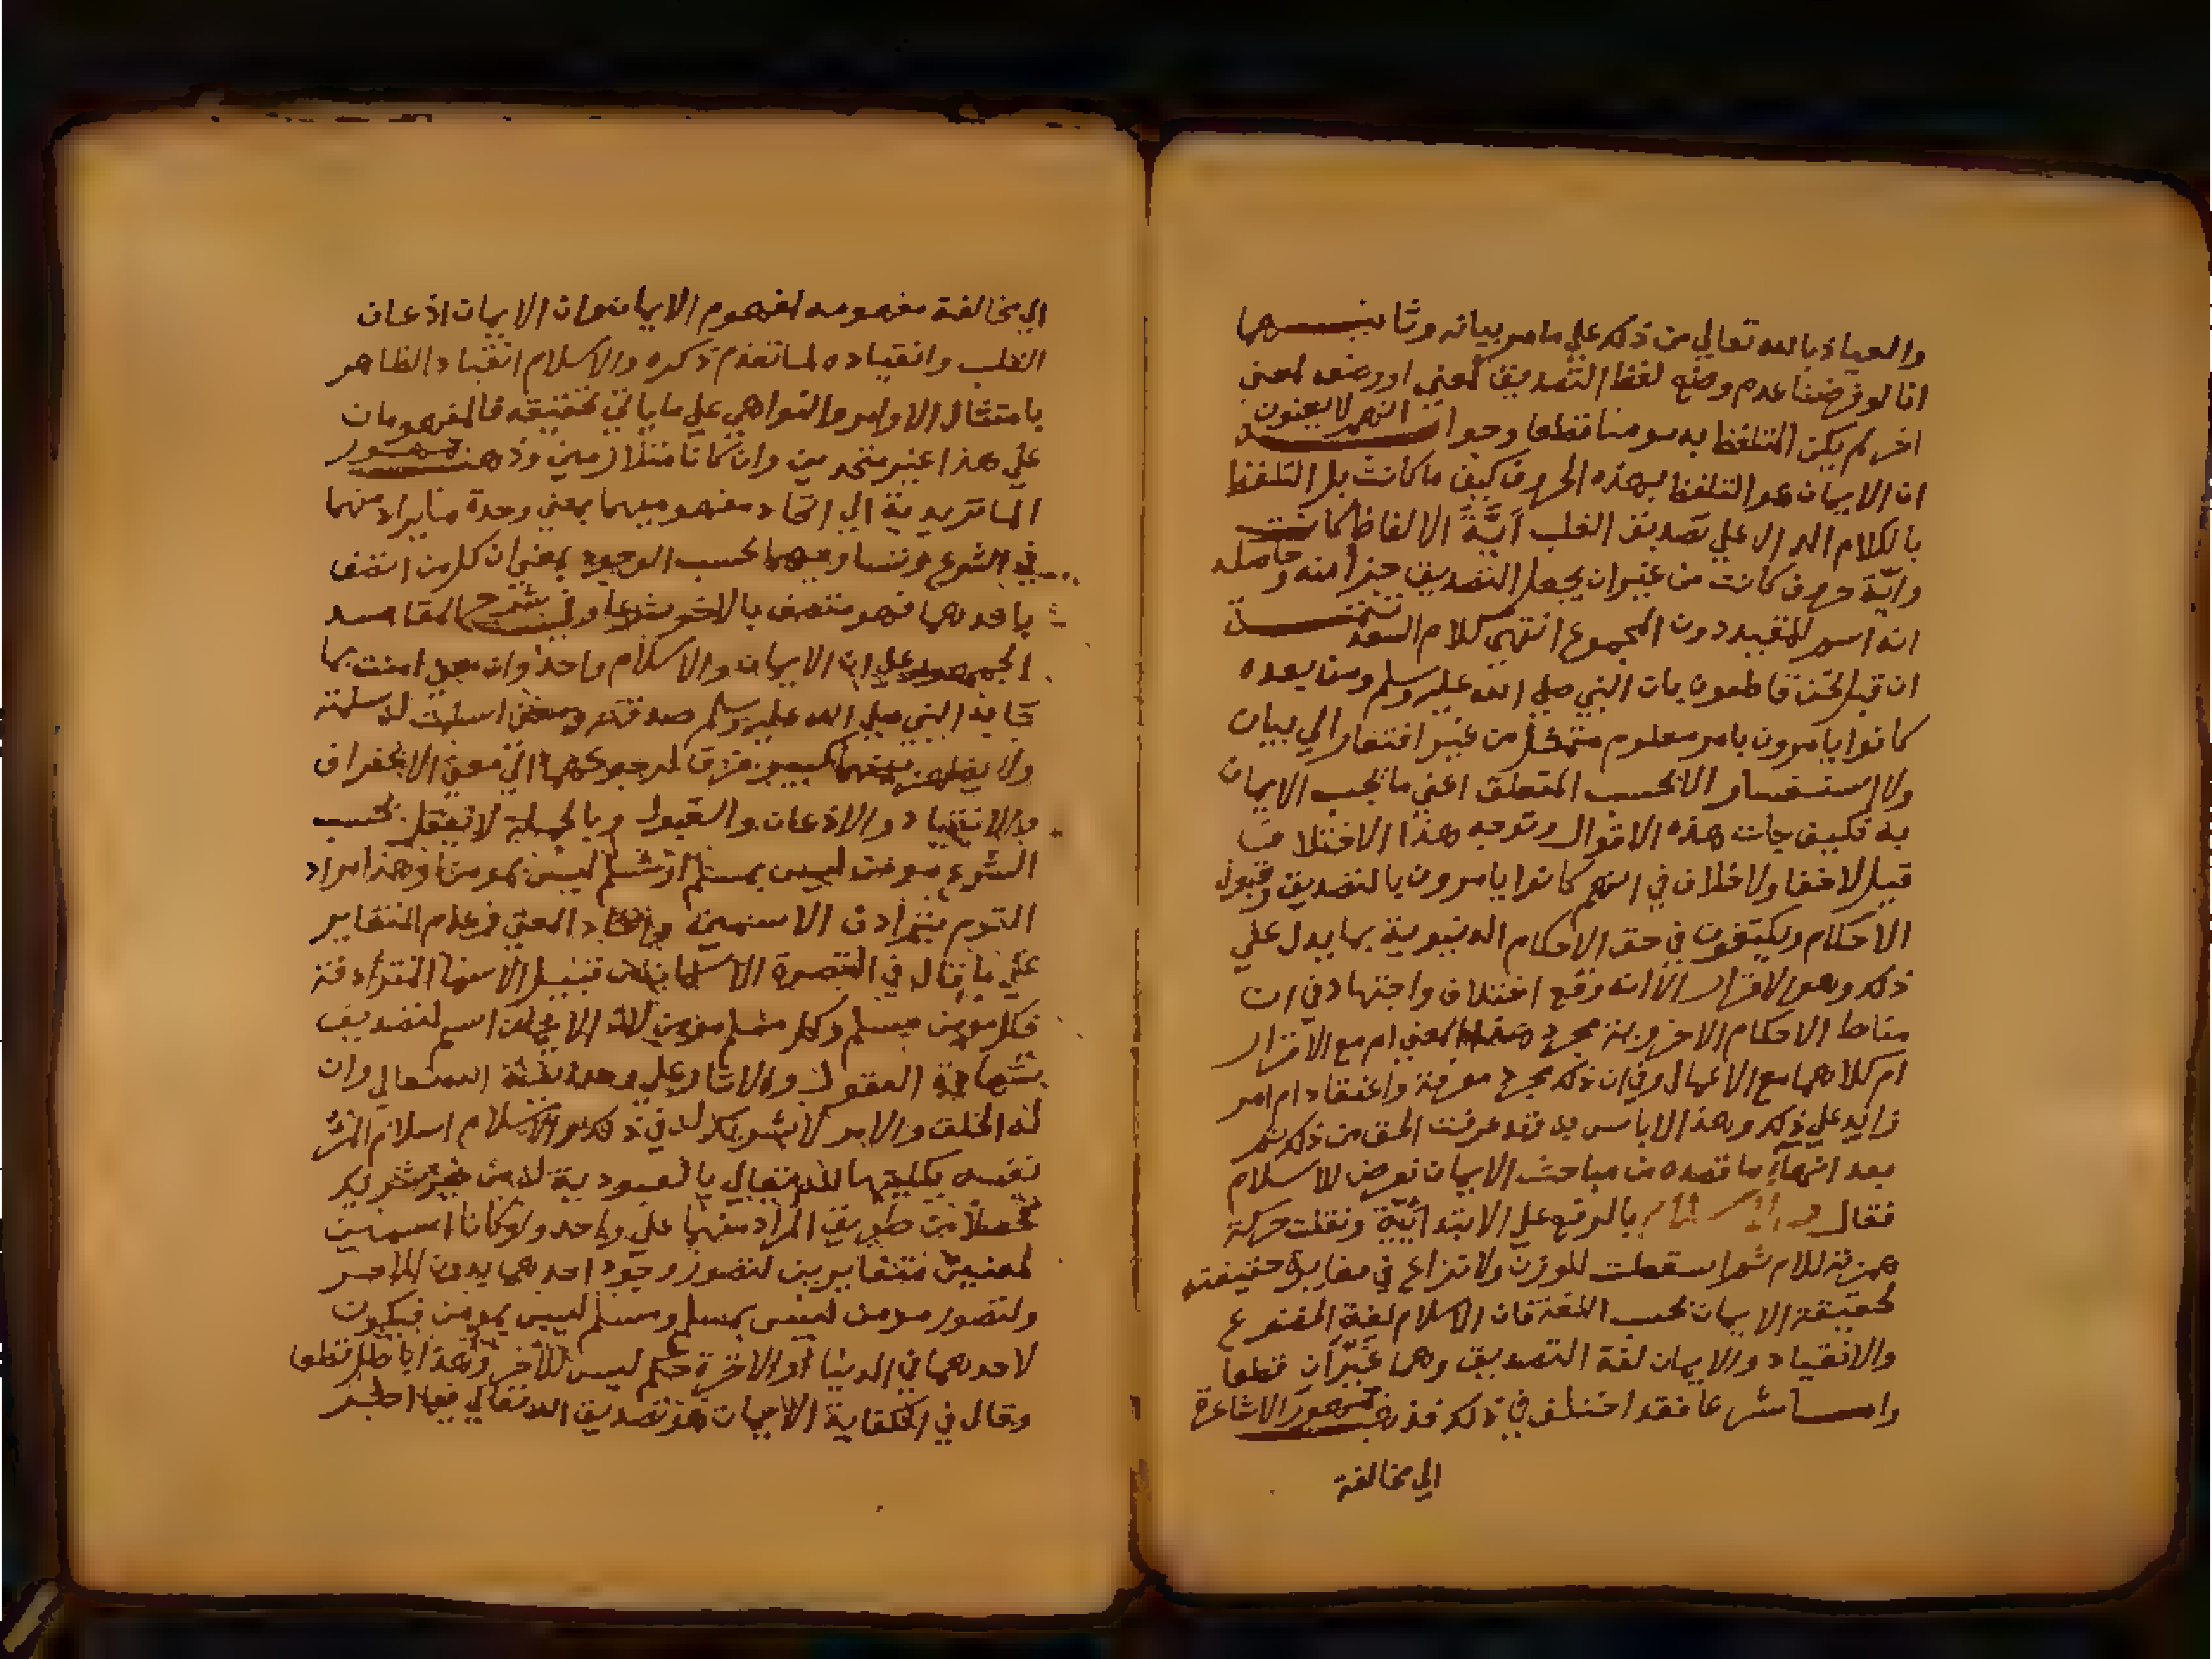 والعياذ بالله تعالي من ذلك علي ما مر بيانه وثانيهما
انا لو فرضنا عدم وضع لفظ التصديق لمعني او وضعه لمعني
اخر لم يكن المتلفظ به مومنا قطعا وجوابه انهم لا يعنون
ان الايمان هو التلفظ بهذه الحروف كيف ما كانت بل التلفظ
بالكلام الدال علي تصديق القلب اَيَّةَ الالفاظ كانت
وايّة حروف كانت من غير ان يجعل التصديق جزأ منه وحاصله
انه اسم للمقيد دون المجموع انتهي كلام السعد تتمة
ان قيل نحن قاطعون بان النبي صلي الله عليه وسلم ومن بعده
كانوا يامرون بامر معلوم من غير افتقار الي بيان
ولا استفسار الا بحسب المتعلق اعني ما يجب الايمان
به فكيف جات هذه الاقوال وتوجه هذا الاختلاف
قيل لا خفا ولا خلاف في انهم كانوا يامرون بالتصديق وقبول
الاحكام ويكتفون في حق الاحكام الدنيوية بما يدل علي
ذلك وهو الاقرار الا انه وقع اختلاف واجتهاد في ان
مناط الاحكام الاخروية مجرد هذا المعني ام مع الاقرار
ام كلاهما مع الاعمال وفي ان ذلك مجرد معرفة واعتقاد ام امر
زايد علي ذلك وهذا لا باس به وقد عرفت الحق من ذلك ثم
بعد انتهآء ما قصده من مباحث الايمان تعرض للاسلام
فقال والاسلام بالرفع علي الابتدائيّة ونقلت حركة
همزته للام ثم اسقطت للوزن ولا نزاع في مغايرة حقيقته
لحقيقة الايمان بحسب اللغة فان الاسلام لغة الخضوع
والانقياد والايمان لغة التصديق وهما غَيْرَان قطعا
واما شرعا فقد اختلف في ذلك فذهب جمهور الاشاعرة
الي مخالفة
الي مخالفة مفهومه لمفهوم الايمان وان الايمان اذعان
القلب وانقياده لما تقدم ذكره والاسلام انقياد الظاهر
بامتثال الاوامر والنواهي علي ما ياتي تحقيقه فالمفهومان
علي هذا غير متحدين وان كانا متلازمين وذهب جمهور
الماتريدية الي اتحاد مفهوميهما بمعني وحدة ما يراد منهما
في الشرع وتساويهما بحسب الوجود بمعني ان كل من اتصف
باحدهما فهو متصف بالاخر شرعا وفي شرح المقاصد
الجمهور علي ان الايمان والاسلام واحد وان معني امنت بما
جا به النبي صلي الله عليه وسلم صدقته ومعني اسلمت له سلمته
ولا يظهر بينهما كبير فرق لرجوعهما الي معني الاعتراف
والانقياد والاذعان والقبول وبالجملة لا يعقل بحسب
الشرع مومن ليس بمسلم او مسلم ليس بمومن وهذا مراد
القوم بترادف الاسمين واتحاد المعني وعدم التغاير
علي ما قال في التبصرة الاسمان من قبيل الاسما المترادفة
فكل مومن مسلم وكل مسلم مومن لان الايمان اسم لتصديق
شهادة العقول والاثار علي وحدانية الله تعالي وان
له الخلق والامر لا شريك له في ذلك والاسلام اسلام المرء
نفسه بكليتها لله تعالي بالعبودية له من غير شريك
فحصلا من طريق المراد منهما علي واحد ولو كانا اسمين
لمعنيين متغايرين لتصور وجود احدهما بدون الاخر
ولتصور مومن ليس بمسلم ومسلم ليس بمومن فيكون
لاحدهما في الدنيا او الاخرة حكم ليس للآخر وهذا باطل قطعا
وقال في الكفاية الايمان هو تصديق الله تعالي فيما اخبر